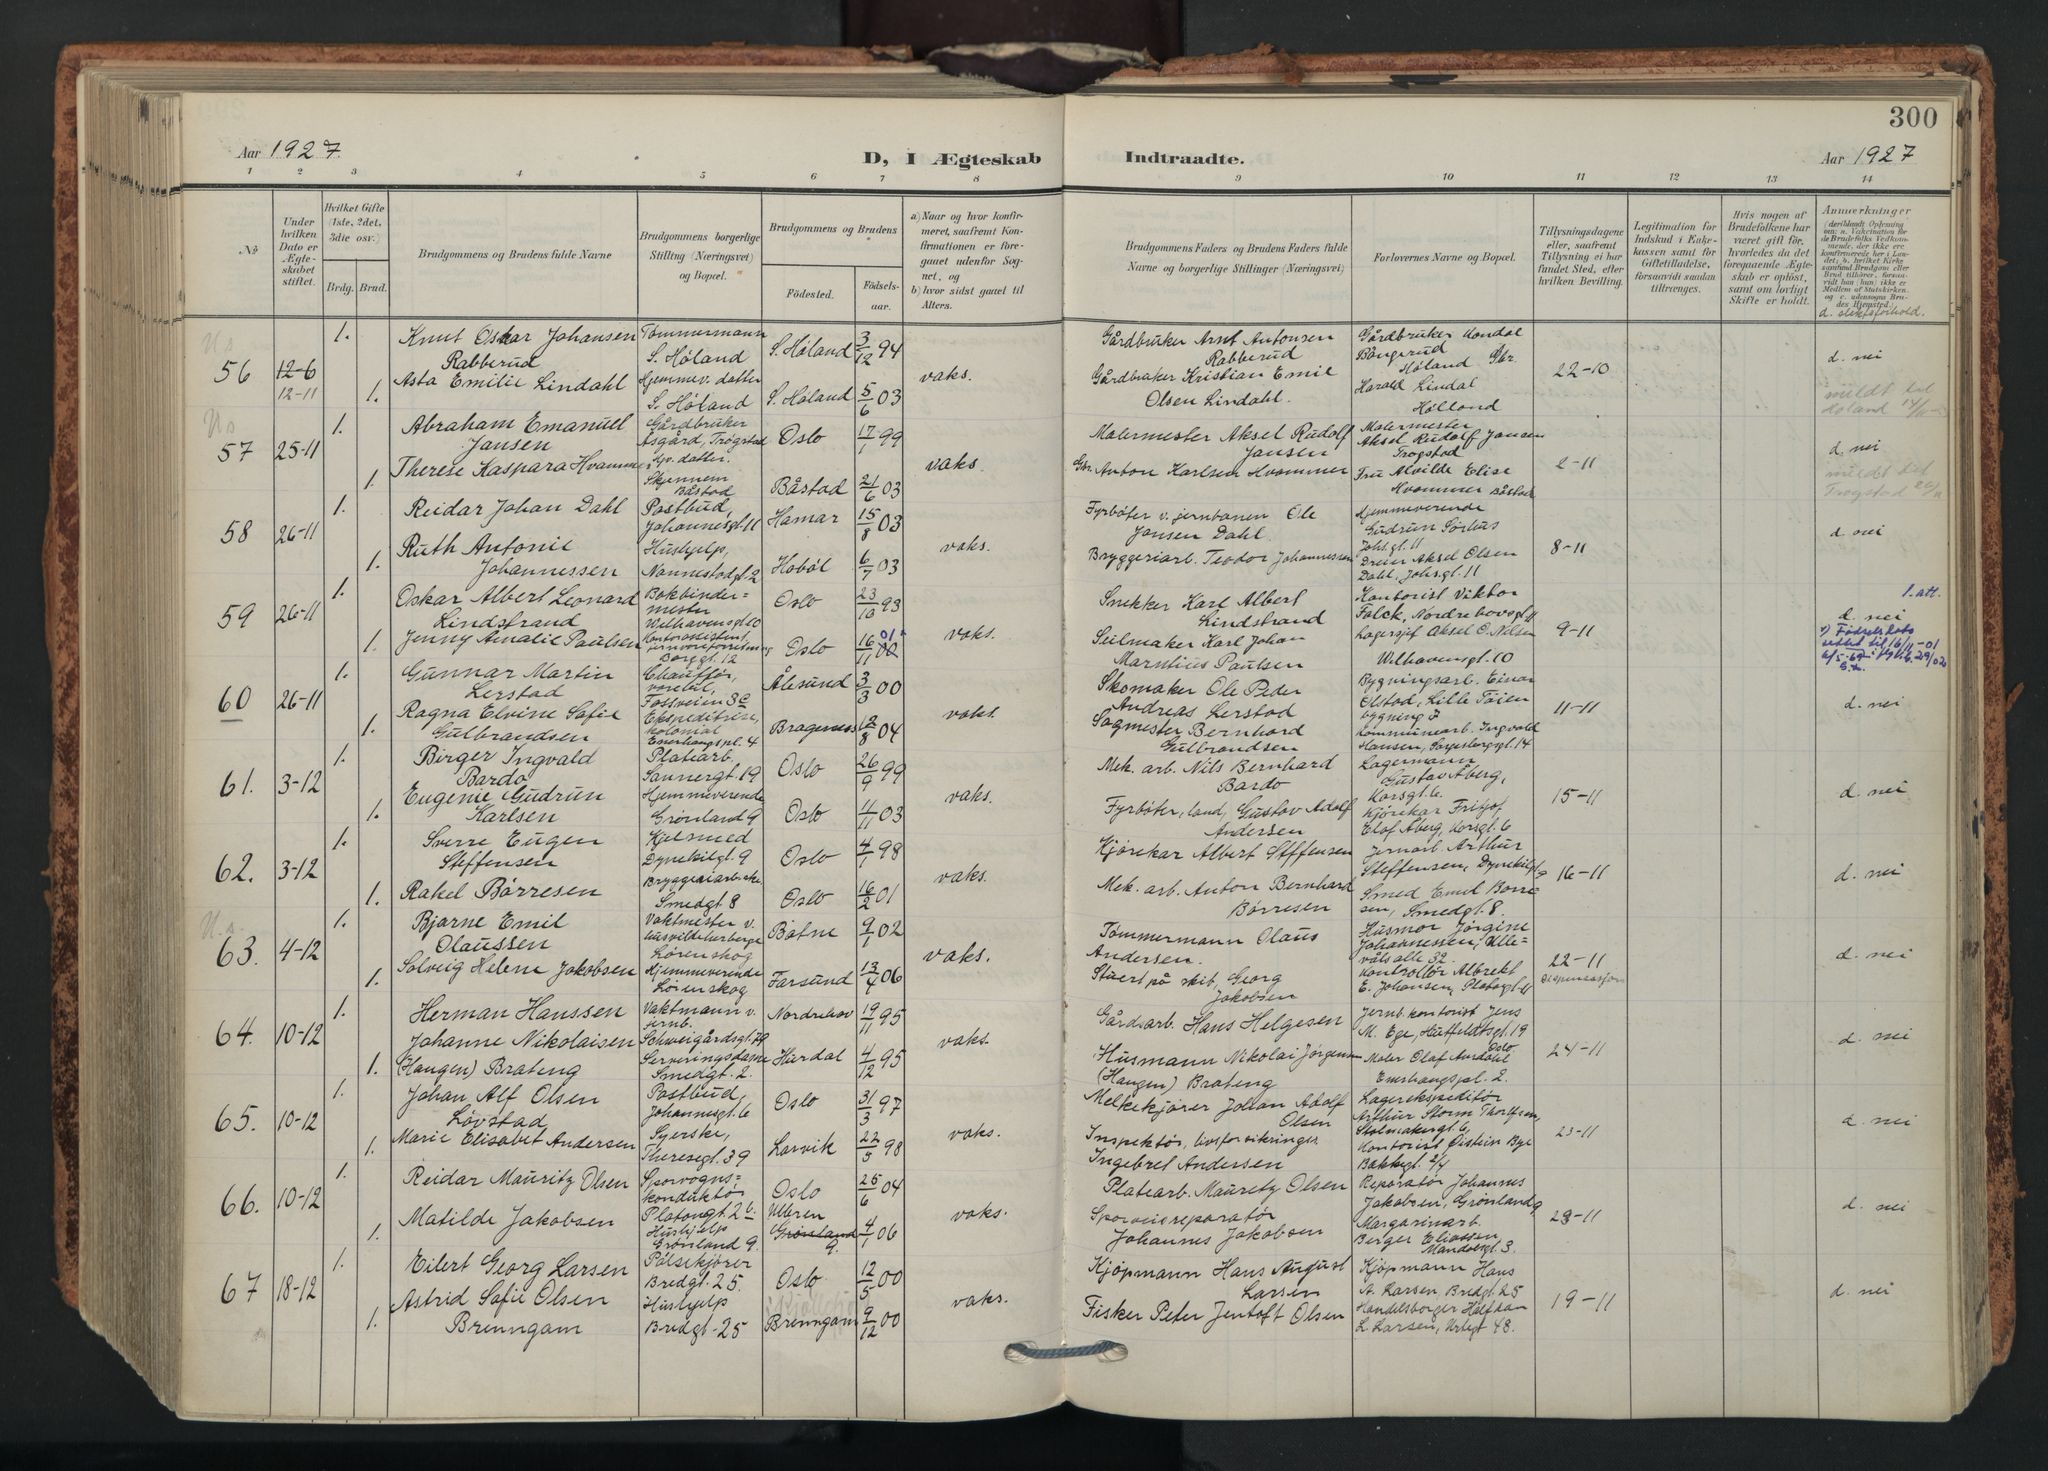 300
Aar 1927.
D, I Ægteskab
Indtraadte.
Aar 1927
1 2 3 4 5 6 7 8 9 10 11 12 13 14
No
Under hvilken Dato er Ægteskabet stiftet.
Hvilket Gifte (1ste, 2det, 3die osv.)
Brdg. Brud.
Brudgommens og Brudens fulde Navne
Brudgommens borgerlige Stilling (Næringsvei) og Bopæl.
Brudgommens og Brudens
Fødested.
Fødsels-aar.
a) Naar og hvor konfirmeret, saafremt Konfirmationen er foregaaet udenfor Sognet, og
b) hvor sidst gaaet til Alters.
Brudgommens Faders og Brudens Faders fulde Navne og borgerlige Stillinger (Næringsvei)
Forlovernes Navne og Bopæl.
Tillysningsdagene eller, saafremt Tillysning ei har fundet Sted, efter hvilken Bevilling.
Legitimation for Indskud i Enkekassen samt for Giftetilladelse, forsaavidt saadan tiltrænges.
Hvis nogen af Brudefolkene har været gift før, hvorledes da det foregaaende Ægteskab er opløst, samt om lovligt Skifte er holdt.
Anmerkninger
d. slektsforhold.
56 12-6
12-11
1. Knut Oskar Johansen
Rabberud
Tømmermann
S. Høland
S. Høland 3/12 94
vaks.
Gårdbruker Arnt Antonsen
Rabberud
Gårdbruker
Høland
22-10
d. nei
1. Asta Emilie Lindahl
Hjemmev. datter
S. Høland
S. Høland 5/6 03
Gårdbruker Kristian Emil
Olsen Lindahl.
Harald Lindal
Hølland
57 25-11
1. Abraham Emanuel
Jansen
Gårdbruker
Åsgård, Trøgstad
Oslo 17/1 99
vaks.
Malermester Aksel Rudolf
Jansen
Malermester
Aksel Rudolf Jansen
Trøgstad
2-11
d. nei
1. Therese Kaspara Hvammer
Gbr. datter.
Båstad
Båstad 21/6 03
Gbr. Anton Karlsen Hvammer
Fru Alvilde Elise
Hvammer Båstad
58 26-11
1. Reidar Johan Dahl
Postbud,
Johannesgt. 11
Hamar 15/8 03
vaks.
Fyrbøter v. jernbanen Ole
Jansen Dahl.
Hjemmeverende
Gudrun Sørhus
Johs.gt. 11
8-11
d. nei
1. Ruth Antonie
Johannessen
Hushjelp,
Nannestadgt. 2
Hobøl 6/7 03
Bryggeriarb. Teodor Johannessen
Dreier Aksel Olsen
Dahl, Johsgt. 11
59 26-11
1. Oskar Albert Leonard
Lindstrand
Bokbindermester
Welhavensgt. 10
Oslo 23/10 93
vaks.
Snekker Karl Albert
Lindstrand
Kontorist Viktor
Falck, Nordre hovsgt. 11
9-11
1. att.
d. nei
1. Jenny Amalie Paulsen
Kontoristinne,
jernvareforretning
Borggt. 12
Oslo 16/11 02 01
Seilmaker Karl Johan
Marntius Paulsen
Lagersjef Aksel O. Nilsen
Welhavensgt. 10
60 26-11
1. Gunnar Martin
Lerstad
Chauffør,
varebil,
Fossveien 3c
Ålesund 3/3 00
vaks.
Skomaker Ole Peder
Andreas Lerstad
Bygningsarb. Einar
Olstad, Lille Tøien
bygning 7
11-11
d. nei
1. Ragna Elvine Sofie
Gulbrandsen
Ekspeditrise,
kolonial
Enerhaugspl. 4
Bragernes 12/8 04
Sagmester Bernhard
Gulbrandsen
Kommunearb. Ingvald
Hansen, Sarpsborggt. 14
61. 3-12
1. Birger Ingvald
Bardo
Platearb.
Sannergt. 19
Oslo 26/9 99
vaks.
Mek. arb. Nils Bernhard
Bardo
Lagermann
Gustav Åberg,
Korsgt. 6.
15-11
d. nei
1. Eugenie Gudrun
Karlsen
Hjemmeverende
Grønland 9
Oslo 11/11 03
Fyrbøter, land, Gustav Adolf
Andersen
Kjørekar Fritjof
Elof Åberg, Korsgt. 6
62. 3-12
1. Sverre Eugen
Steffensen
Kjelsmed
Dynekilgt. 9
Oslo 4/1 98
vaks.
Kjørekar Albert Steffensen
Jernarb. Arthur
Steffensen, Dynekilgt. 9
16-11
d. nei
1. Rakel Børresen
Bryggeriarbske.
Smedgt. 8
Oslo 16/2 01
Mek. arb. Anton Bernhard
Børresen
Smed Emil Børresen, Smedgt. 8.
63. 4-12
1. Bjarne Emil
Olaussen
Vaktmester v.
husvildeherberge
Lørenskog
Botne 9/1 02
vaks.
Tømmermann Olaus
Andersen.
Husmor Jørgine
Johannessen, Ullevåls alle 32.
22-11
dispensasjon
d. nei
1. Solveig Helene Jakobsen
Hjemmeverende
Lørenskog
Farsund 13/4 06
Stuert på skib, Georg
Jakobsen
Kontrollør Albrekt
E. Johansen, Platousgt. 11
64. 10-12
1. Herman Hanssen
Vaktmann v.
jernb.
Schweigårdsgt. 79
Nordrehov 19/11 95
vaks.
Gårdsarb. Hans Helgesen
Jernb. kontorist Jens
M. Ege, Huitfeldtsgt. 19
Oslo
24-11
d. nei
1. Johanne Nikolaisen
(Haugen) Brateng
Serveringsdame
Smedgt. 2.
Hurdal 4/12 95
Husmann Nikolai Jørgensen
(Haugen) Brateng
Maler Olaf Aurdahl
Enerhaugspl. 2.
65. 10-12
1. Johan Alf Olsen
Løvstad
Postbud,
Johannesgt. 6
Oslo 31/3 97
vaks.
Melkekjører Johan Adolf
Olsen
Lagerekspeditør
Arthur Storm Thorlfsen,
Stolmakergt. 6,
23-11
d. nei
1. Marie Elisabet Andersen
Syerske,
Theresegt. 39
Larvik 22/5 98
Inspektør, livsforsikringer
Ingebret Andersen
Kontorist Øistein Bye
Bakkegt. 2/4
66. 10-12
1. Reidar Mauritz Olsen
Sporvognskonduktør
Platougt. 2b
Oslo 25/6 04
vaks.
Platearb. Mauritz Olsen
Reparatør Johannes
Jakobsen, Grønland 9
23-11
d. nei
1. Matilde Jakobsen
Hushjelp
Grønland 9.
Ullern
Grønland 9. 4/1 06
Sporveisreparatør
Johannes Jakobsen
Margarinarb.
Berger Eliassen
Mandalsgt. 3.
67 18-12
1. Eilert Georg Larsen
Pølsekjører
Bredgt. 25
Oslo 12/5 00
vaks.
Kjøpmann Hans August
Larsen
Kjøpmann Hans
A. Larsen, Bredgt. 25
19-11
d. nei
1. Astrid Sofie Olsen
Brenngam
Hushjelp
Bredgt. 25
Brenngam 9/12 00
Fisker Peter Jentoft Olsen
Handelsborger Halfdan
L. Larsen, Urtegt 48.